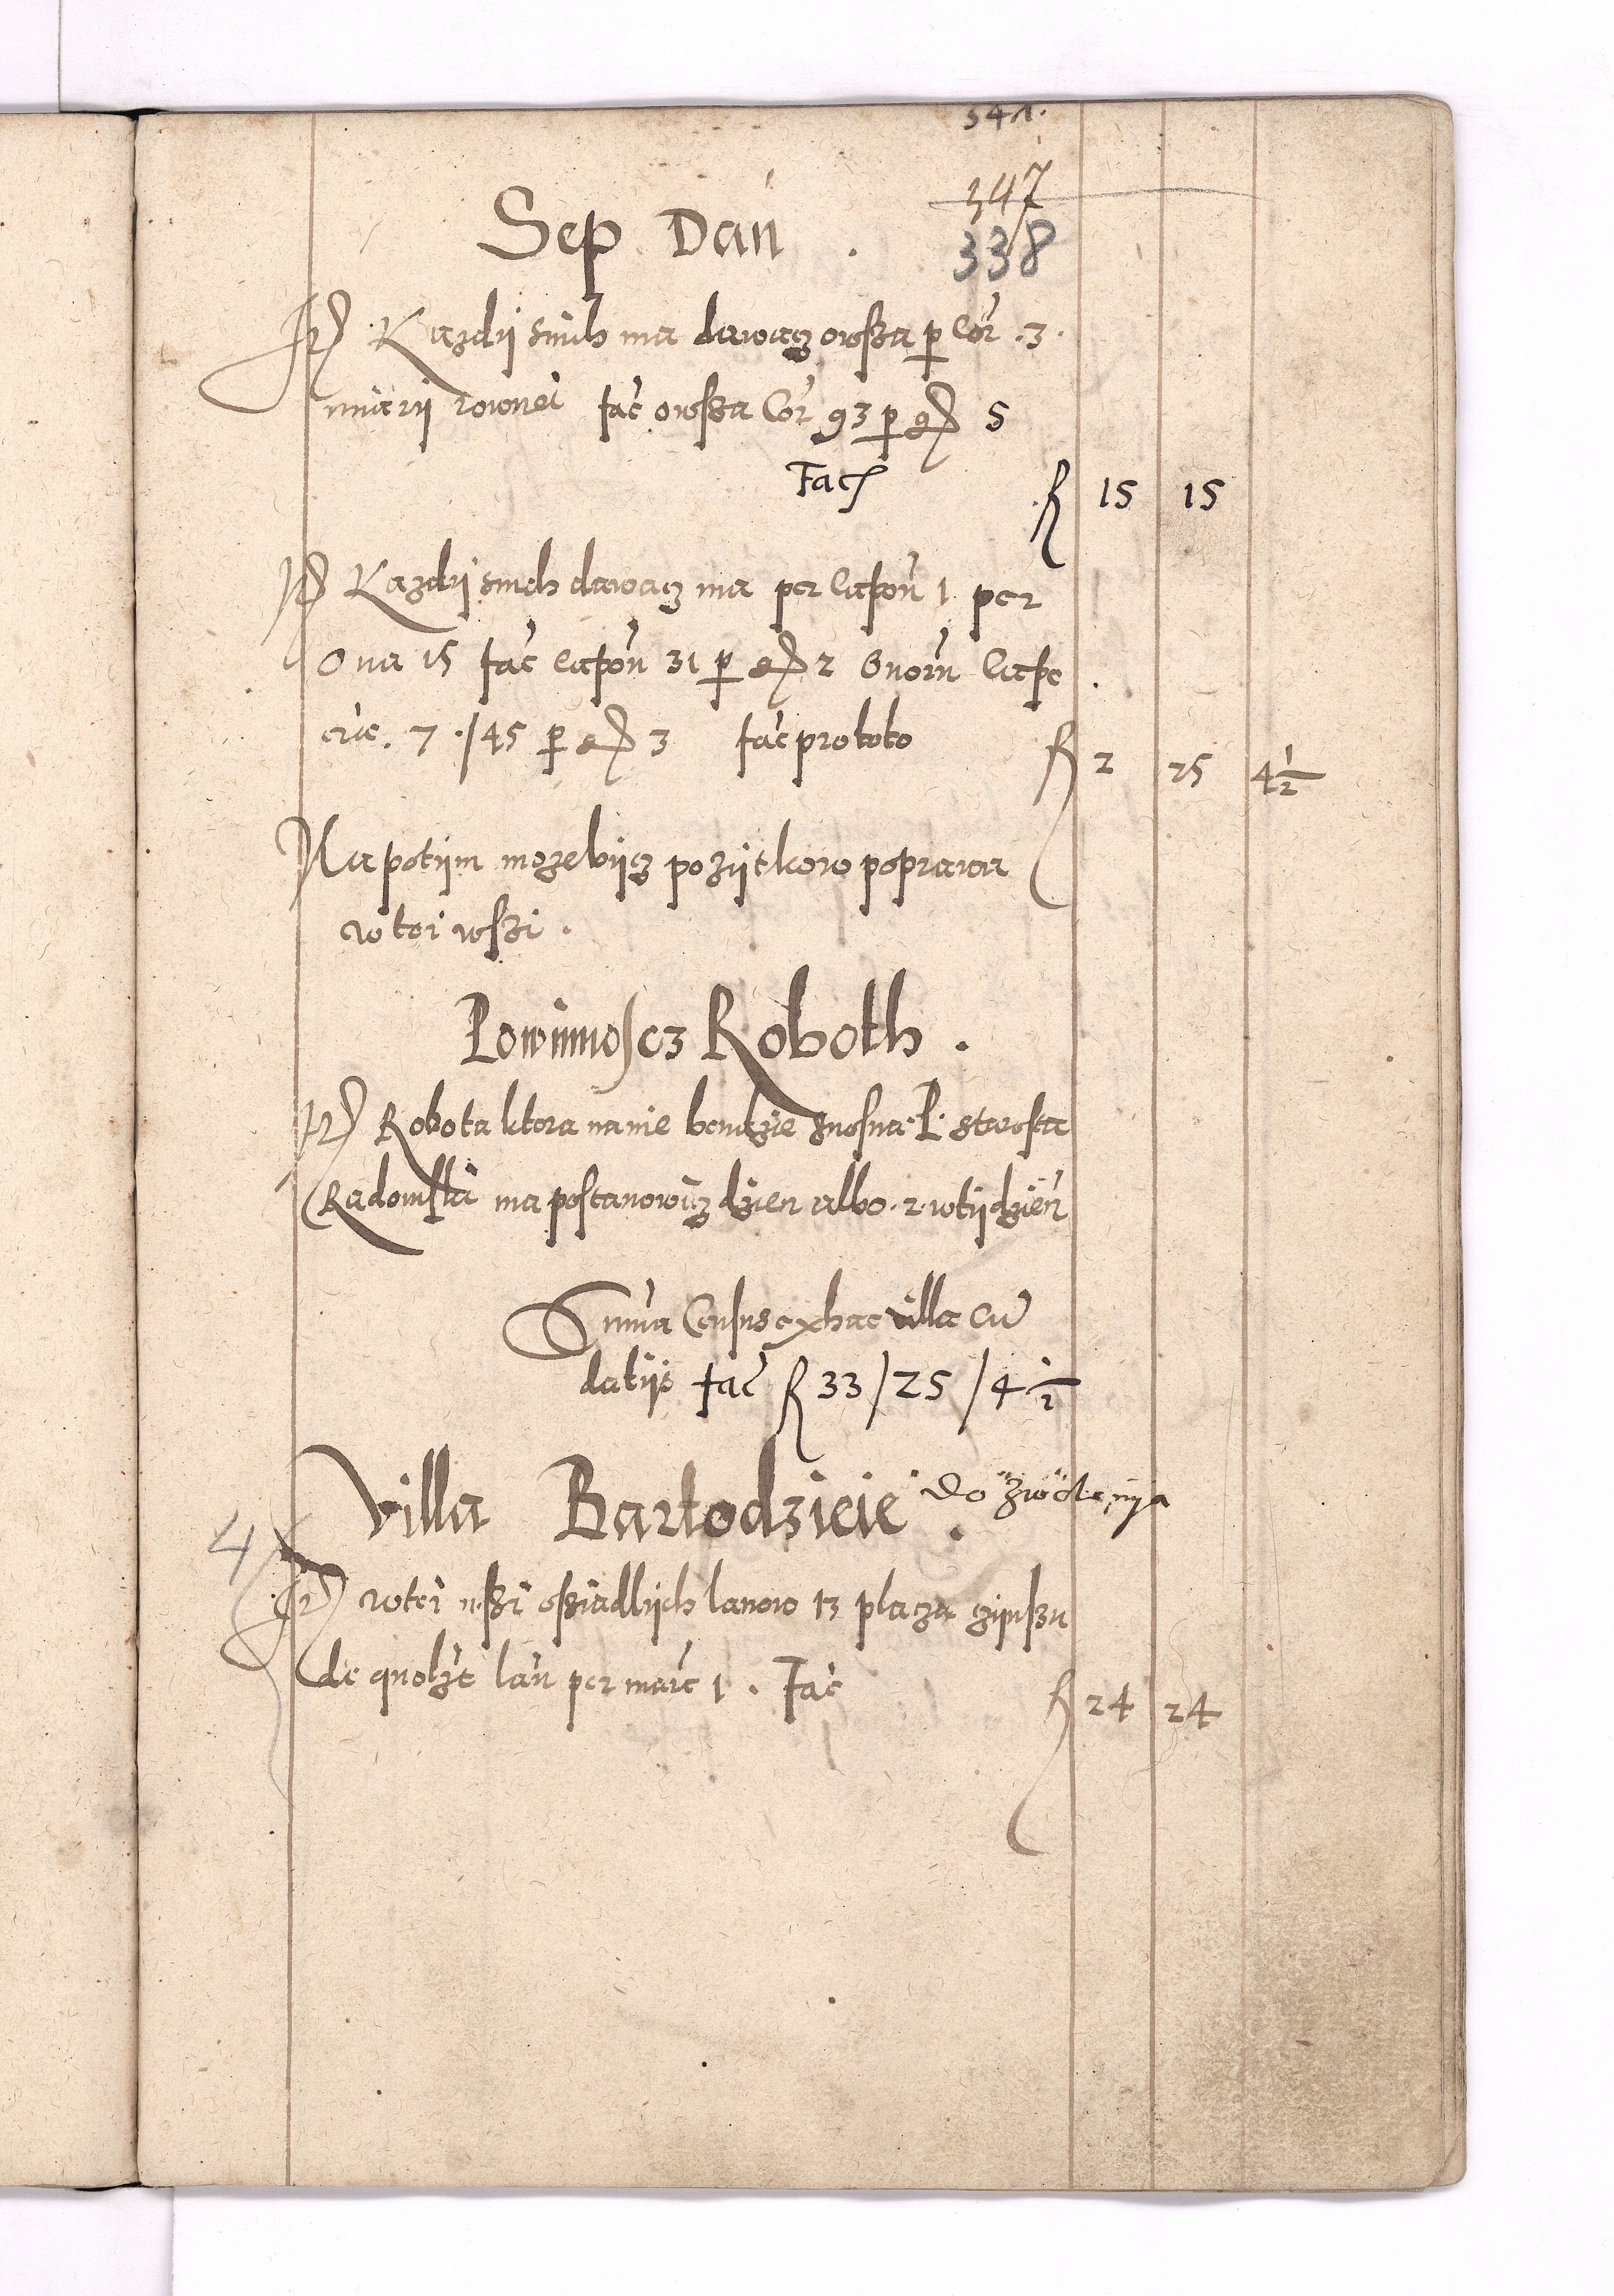 341.
347
338
Sep Dań .
It Kazdij snich ma dawacz owsza p Cor .3.
miarij rownei fac owsza Cor 93 p g 5
Fac
R 15 15
It Kazdij snich dawacz ma per capon 1 per
Ova 15 fac capon 31 p g 2 Ovorū cape
7 ./45 p g 3 fac pro toto
R 2 25 4½
Na potijm moze bijcz pozijtkow poprawa
w tei wszi .
Powinnoscz Roboth .
It Robota ktora na nie bendzie znosna P. starosta
Radomski ma postanowicz dzien albo .2. w tijdzień
Suma Census ex hac villa cū
datijs fac R 33/25/4½
Villa Bartodzieie . Do zwolenija
4
It w tei wszi osziadlijch lanow 13 placza czijnszu
de quolzt lan per marc 1 . Fac
R 24 24